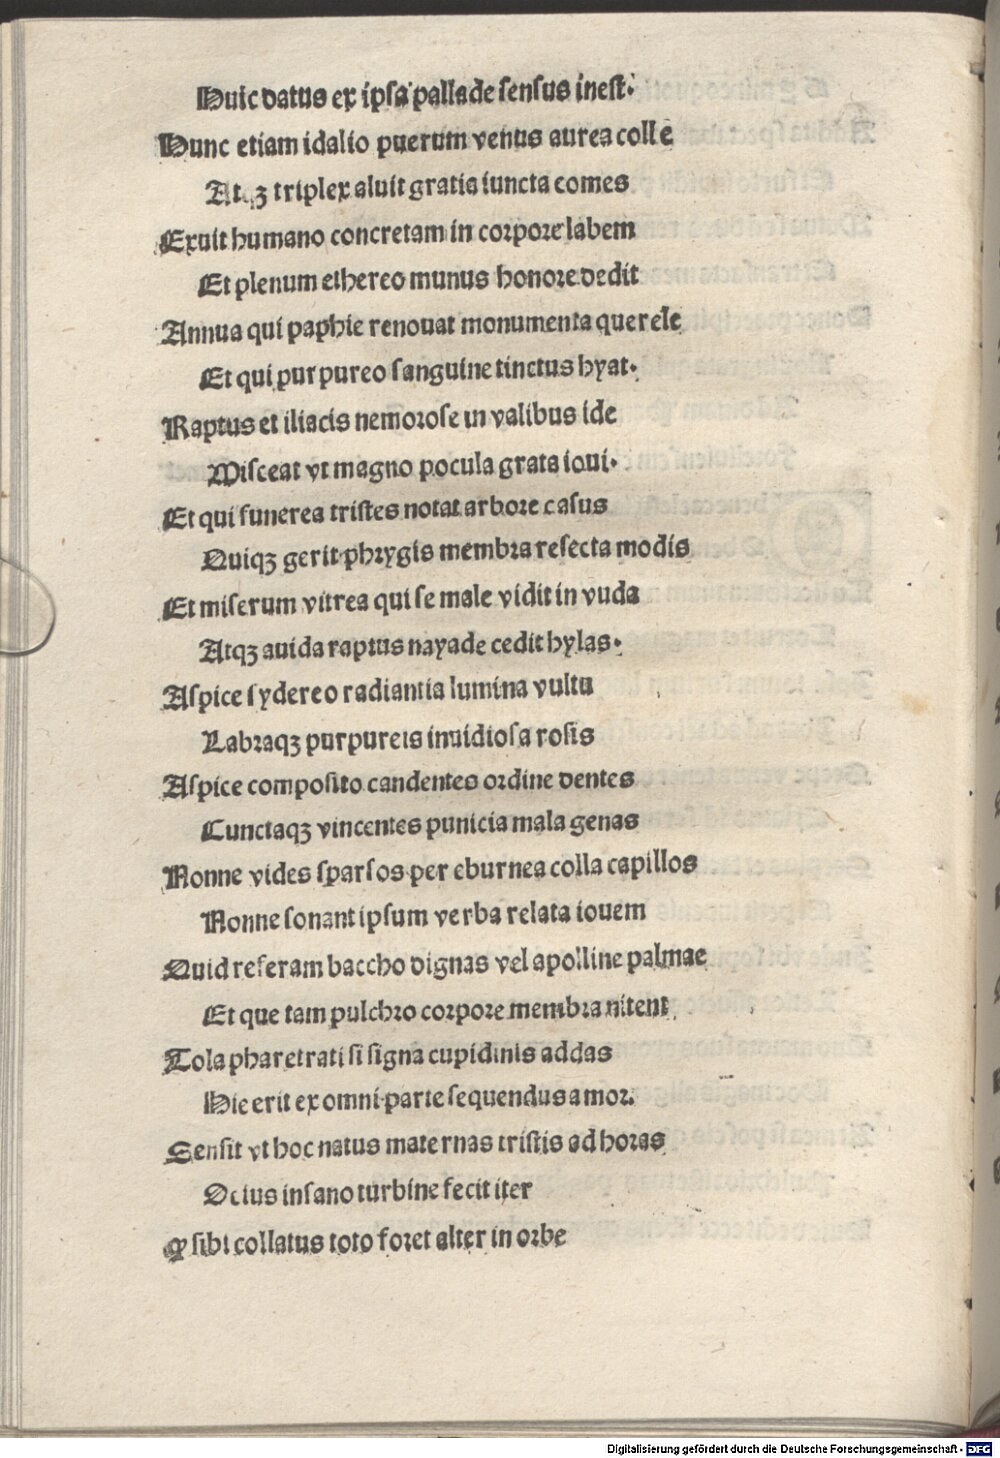 Huic datus ex ipsa pallade sensus inest·
Hunc etiam idalio puerum venus aurea colle
Atqꝫ triplex aluit gratia iuncta comes
Exuit humano concretam in corpore labem
Et plenum ethereo munus honore dedit
Annua qui paphie renouat monumenta querele
Et qui purpureo sanguine tinctus hyat·
Raptus et iliacis nemorose in valibus ide
Misceat vt magno pocula grata ioui·
Et qui funerea tristes notat arbore casus
Quiqꝫ gerit phrygis membra resecta modis
Et miserum vitrea qui se male vidit in vuda
Atqꝫ auida raptus nayade cedit hylas·
Aspice sydereo radiantia lumina vultu
Labraqꝫ purpureis inuidiosa rosis
Aspice composito candentes ordine dentes
Cunctaqꝫ vincentes punicia mala genas
Nonne vides sparsos per eburnea colla capillos
Nonne sonant ipsum verba relata iouem
Quid referam baccho dignas vel apolline palmae
Et que tam pulchro corpore membra nitent
Tola pharetrati si signa cupidinis addas
Hic erit ex omni parte sequendus amor.
Sensit vt hoc natus maternas tristis ad horas
Ocius insano turbine fecit iter
Qꝫ sibi collatus toto foret alter in orbe
Digitalisierung gefördert durch die Deutsche Forschungsgemeinschaft · DFG